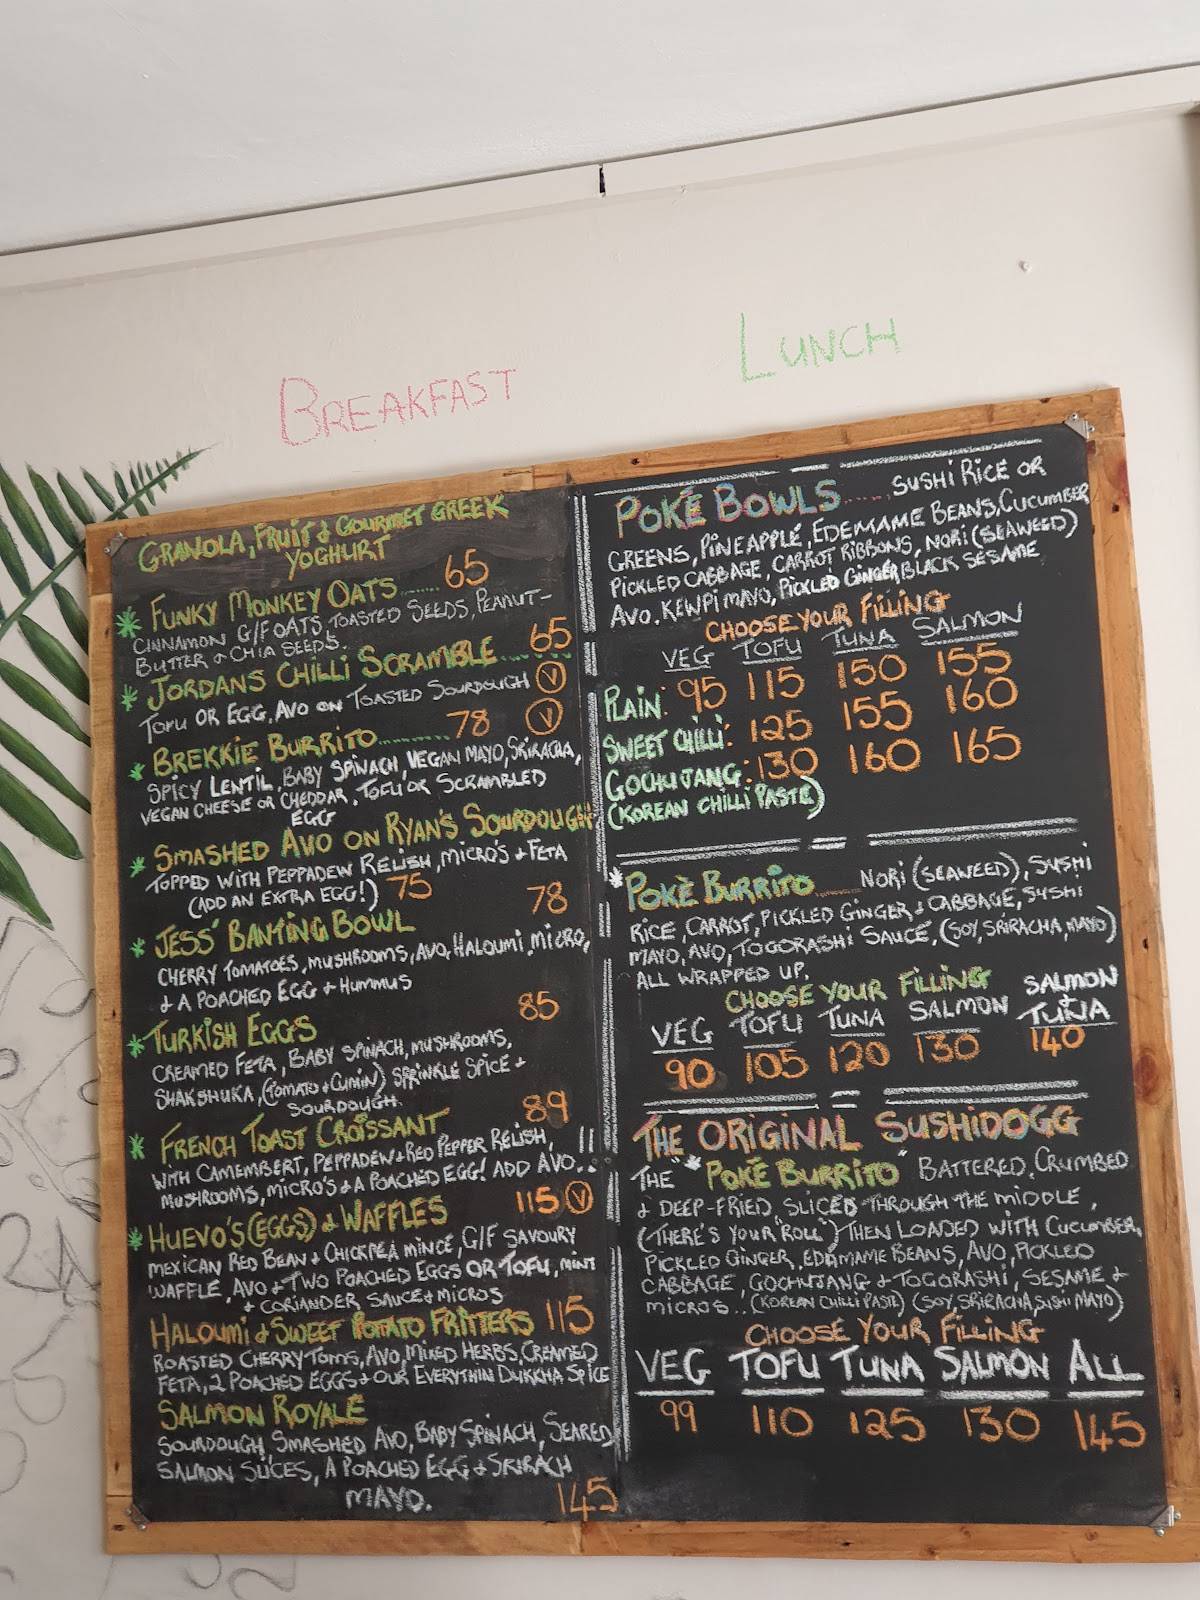 BREAKFAST
LUNCH
GRANOLA, FRUIT & GOURMET GREEK
YOGHURT
65
* FUNKY MONKEY OATS........
CINNAMON G/F OATS, TOASTED SEEDS, PEANUT-
BUTTER & CHIA SEEDS.
65
* JORDANS CHILLI SCRAMBLE......
TOFU OR EGG, AVO ON TOASTED SOURDOUGH V
* BREKKIE BURRITO.......... 78 V
SPICY LENTIL, BABY SPINACH, VEGAN MAYO, SRIRACHA,
VEGAN CHEESE OR CHEDDAR, TOFU OR SCRAMBLED
EGG
* SMASHED AVO ON RYAN'S SOURDOUGH
TOPPED WITH PEPPADEW RELISH, MICRO'S & FETA
(ADD AN EXTRA EGG!) 75
78
* JESS' BANTING BOWL
CHERRY TOMATOES, MUSHROOMS, AVO, HALOUMI, MICRO,
& A POACHED EGG & HUMMUS
85
* TURKISH EGGS
CREAMED FETA, BABY SPINACH, MUSHROOMS,
SHAKSHUKA, (TOMATO & CUMIN) SPRINKLE SPICE &
SOURDOUGH.
89
* FRENCH TOAST CROISSANT
WITH CAMEMBERT, PEPPADEW & RED PEPPER RELISH,
MUSHROOMS, MICRO'S & A POACHED EGG! ADD AVO..
115 V
* HUEVO'S (EGGS) & WAFFLES
MEXICAN RED BEAN & CHICKPEA MINCE, G/F SAVOURY
WAFFLE, AVO & TWO POACHED EGGS OR TOFU, MINT
& CORIANDER SAUCE & MICROS
HALOUMI & SWEET POTATO FRITTERS 115
ROASTED CHERRY TOMS, AVO, MIXED HERBS, CREAMED
FETA, 2 POACHED EGGS & OUR EVERYTHIN DUKKHA SPICE
SALMON ROYALE
SOURDOUGH, SMASHED AVO, BABY SPINACH, SEARED
SALMON SLICES, A POACHED EGG & SRIRACH
MAYO.
145
POKÉ BOWLS...... SUSHI RICE OR
GREENS, PINEAPPLE, EDEMAME BEANS, CUCUMBER
PICKLED CABBAGE, CARROT RIBBONS, NORI (SEAWEED)
AVO, KEWPI MAYO, PICKLED GINGER, BLACK SESAME
CHOOSE YOUR FILLING
VEG TOFU TUNA SALMON
PLAIN: 95 115 150 155
SWEET CHILLI: 125 155 160
GOCHUJANG: 130 160 165
(KOREAN CHILLI PASTE)
* POKÈ BURRITO...... NORI (SEAWEED), SUSHI
RICE, CARROT, PICKLED GINGER & CABBAGE, SUSHI
MAYO, AVO, TOGORASHI SAUCE, (SOY, SRIRACHA, MAYO)
ALL WRAPPED UP.
CHOOSE YOUR FILLING
VEG TOFU TUNA SALMON SALMON & TUNA
90 105 120 130 140
THE ORIGINAL SUSHIDOGG
THE "*POKÉ BURRITO" BATTERED, CRUMBED
& DEEP-FRIED SLICED THROUGH THE MIDDLE,
(THERE'S YOUR "ROLL") THEN LOADED WITH CUCUMBER,
PICKLED GINGER, EDAMAME BEANS, AVO, PICKLED
CABBAGE, GOCHUJANG & TOGORASHI, SESAME &
MICROS.. (KOREAN CHILLI PASTE) (SOY, SRIRACHA, SUSHI MAYO)
CHOOSE YOUR FILLING
VEG TOFU TUNA SALMON ALL
99 110 125 130 145